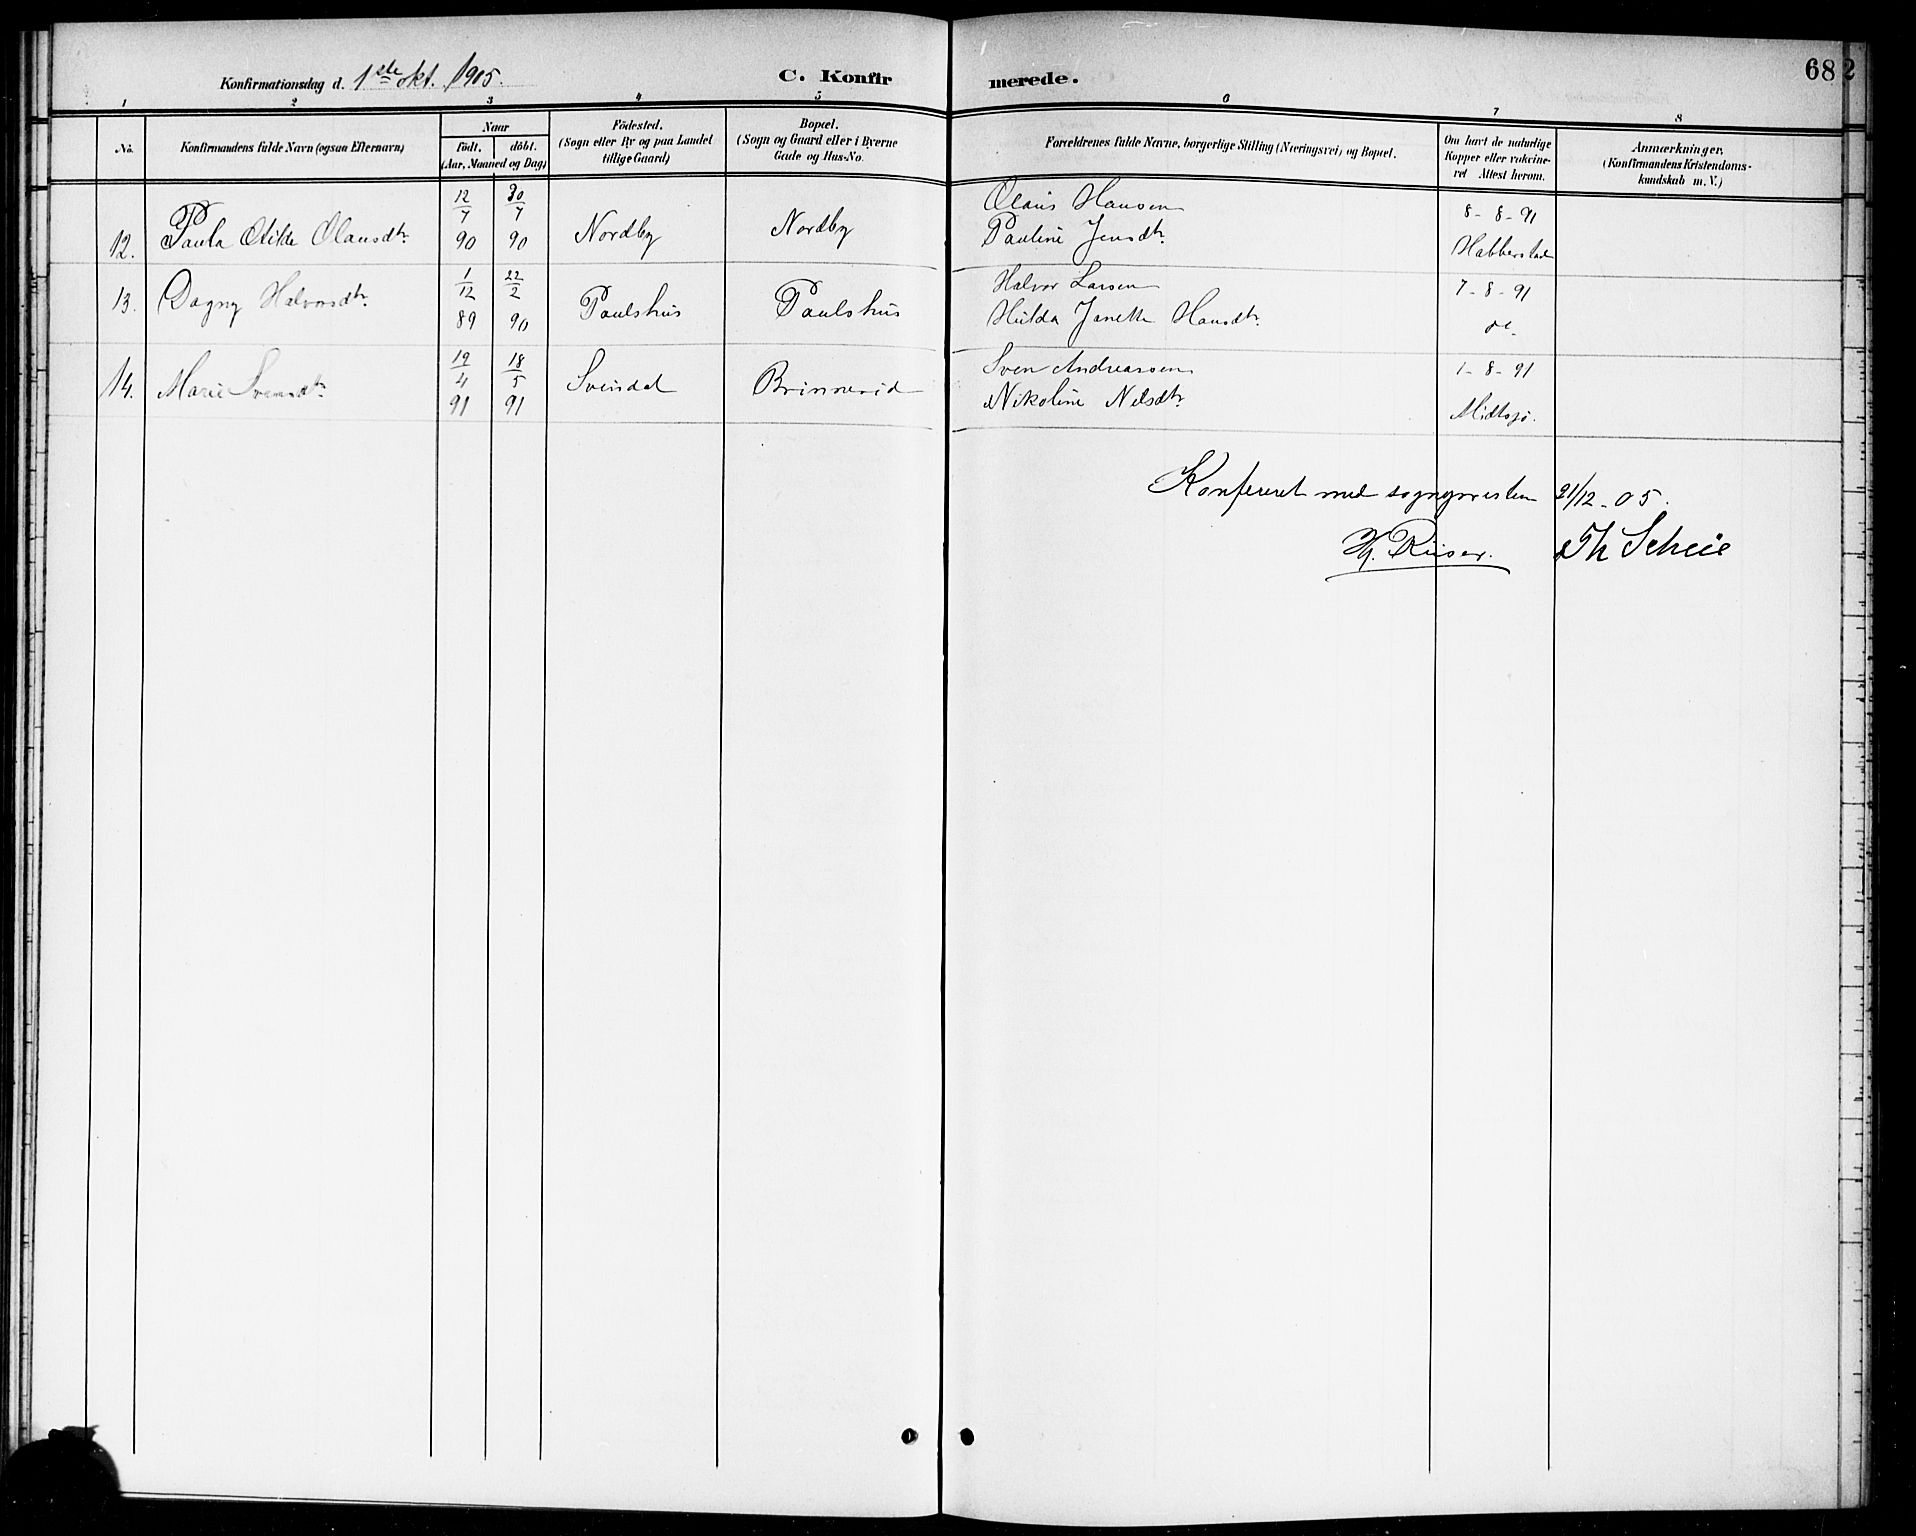 Konfirmationsdag d. 1ste okt. 1905. C. Konfirmerede. 68
1 2 3 4 5 6 7 8
No.
Konfirmandens fulde Navn (ogsaa Efternavn)
Naar
födt. döbt.
(Aar, Maaned og Dag)
Födested.
(Sogn eller By og paa Landet
tillige Gaard)
Bopæl.
(Sogn og Gaard eller i Byerne
Gade og Hus-No.
Forældrenes fulde Navne, borgerlige Stilling (Næringsvei) og Bopæl.
Om havt de naturlige
Kopper eller vakcine-
ret Attest herom.
Anmærkninger,
(Konfirmandens Kristendoms-
kundskab m. V.)
12. Paula Otilde Olausdtr. 12/7 90 30/7 90 Nordby Nordby
Olaus Hansen
Pauline Jensdtr.
8-8-91
Habberstad
13. Dagny Halvorsdtr. 1/12 89 22/2 90 Paulshus Paulshus
Halvor Larsen
Hulda Janette Hansdtr.
7-8-91
14. Marie Svensdtr. 19/4 91 18/5 91 Svindal
Sven Andreassen
Nikoline Nilsdtr.
1-8-91
Midtsjø.
Konfereret med sognepresten 21/12-05.
Riiser. Th Scheie